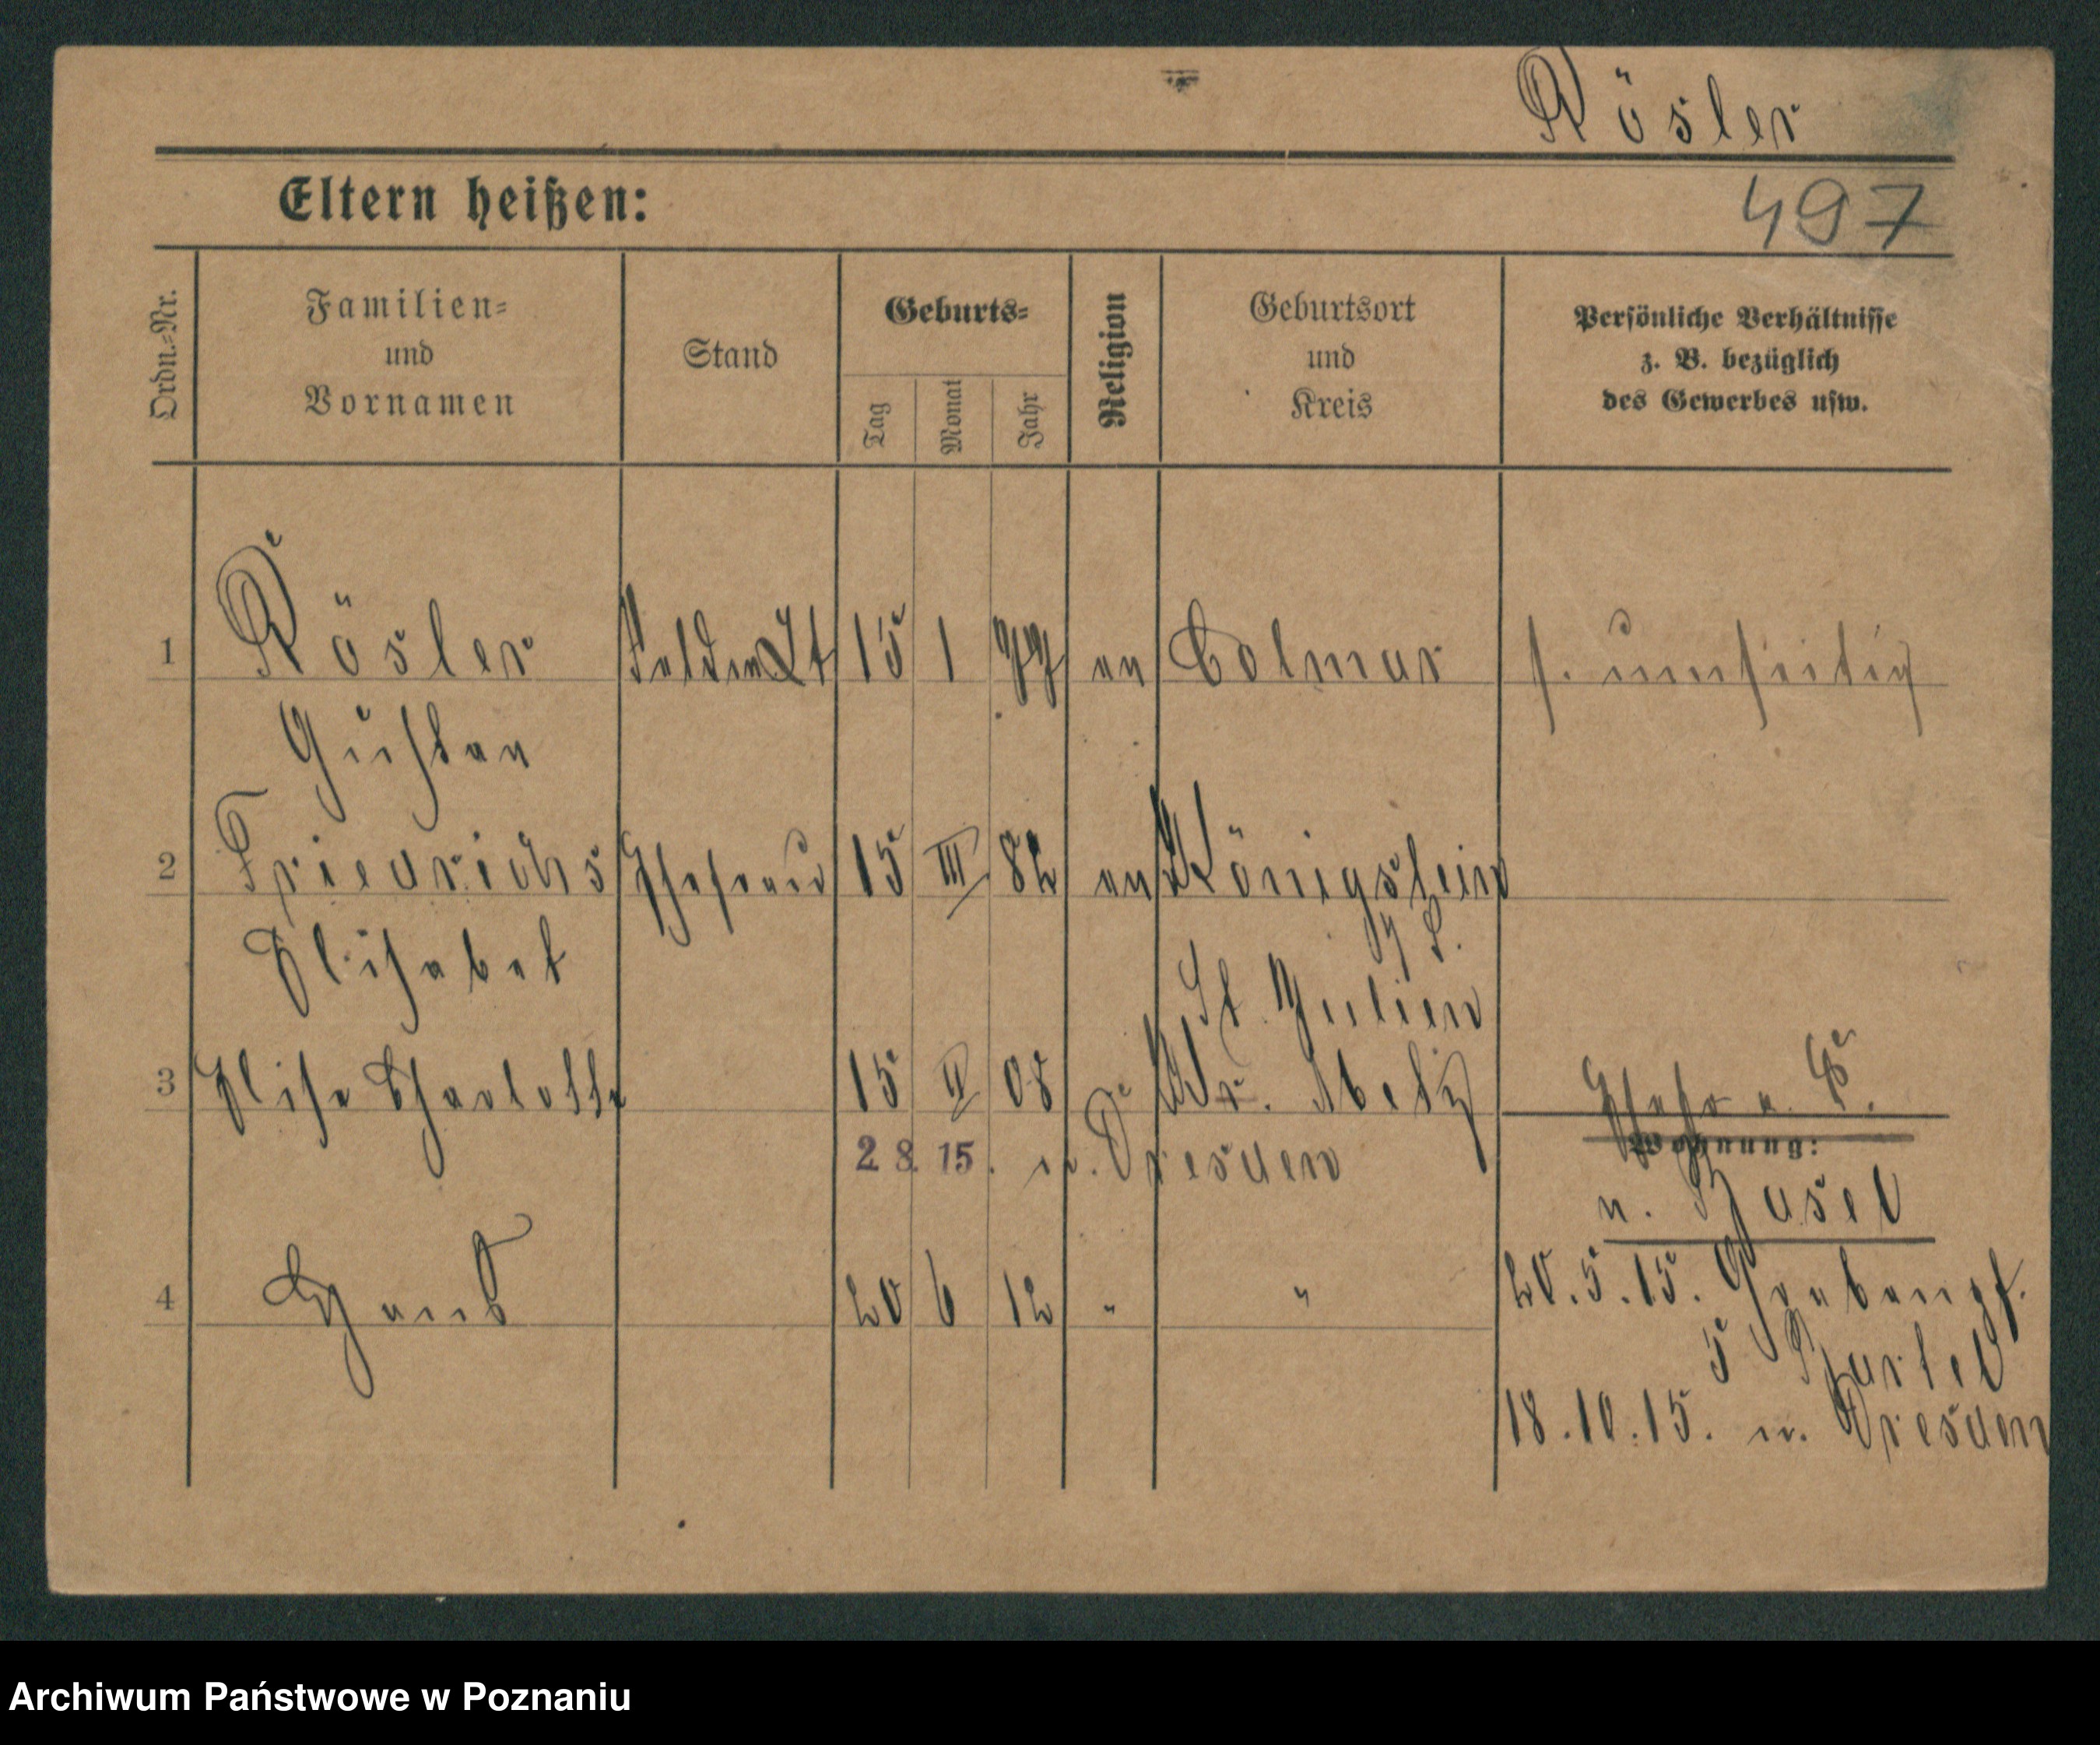 Rösler
Eltern heißen:
497
Ordn.-Nr.
Familien-
und
Vornamen
Stand
Geburts-
Tag
Monat
Jahr
Religion
Geburtsort
und
Kreis
Persönliche Verhältnisse
z. B. bezüglich
des Gewerbes usw.
1 Rösler 15 1 77 ev Colmar s. umseitig
Gustav
2 Friedrichs Ehefrau 15 III 82 ev Königstein
Elisabet
St. Julien
3 Elise Charlotte 15 II 08 Kr. Metz Ehefr u.
2 8. 15. n. Dresden Wohnung:
n. Basel
4 Hans 20 6 12 " " 20. 5. 15. Grabenpf.
5
18. 10. 15. n. Dresden
Archiwum Państwowe w Poznaniu